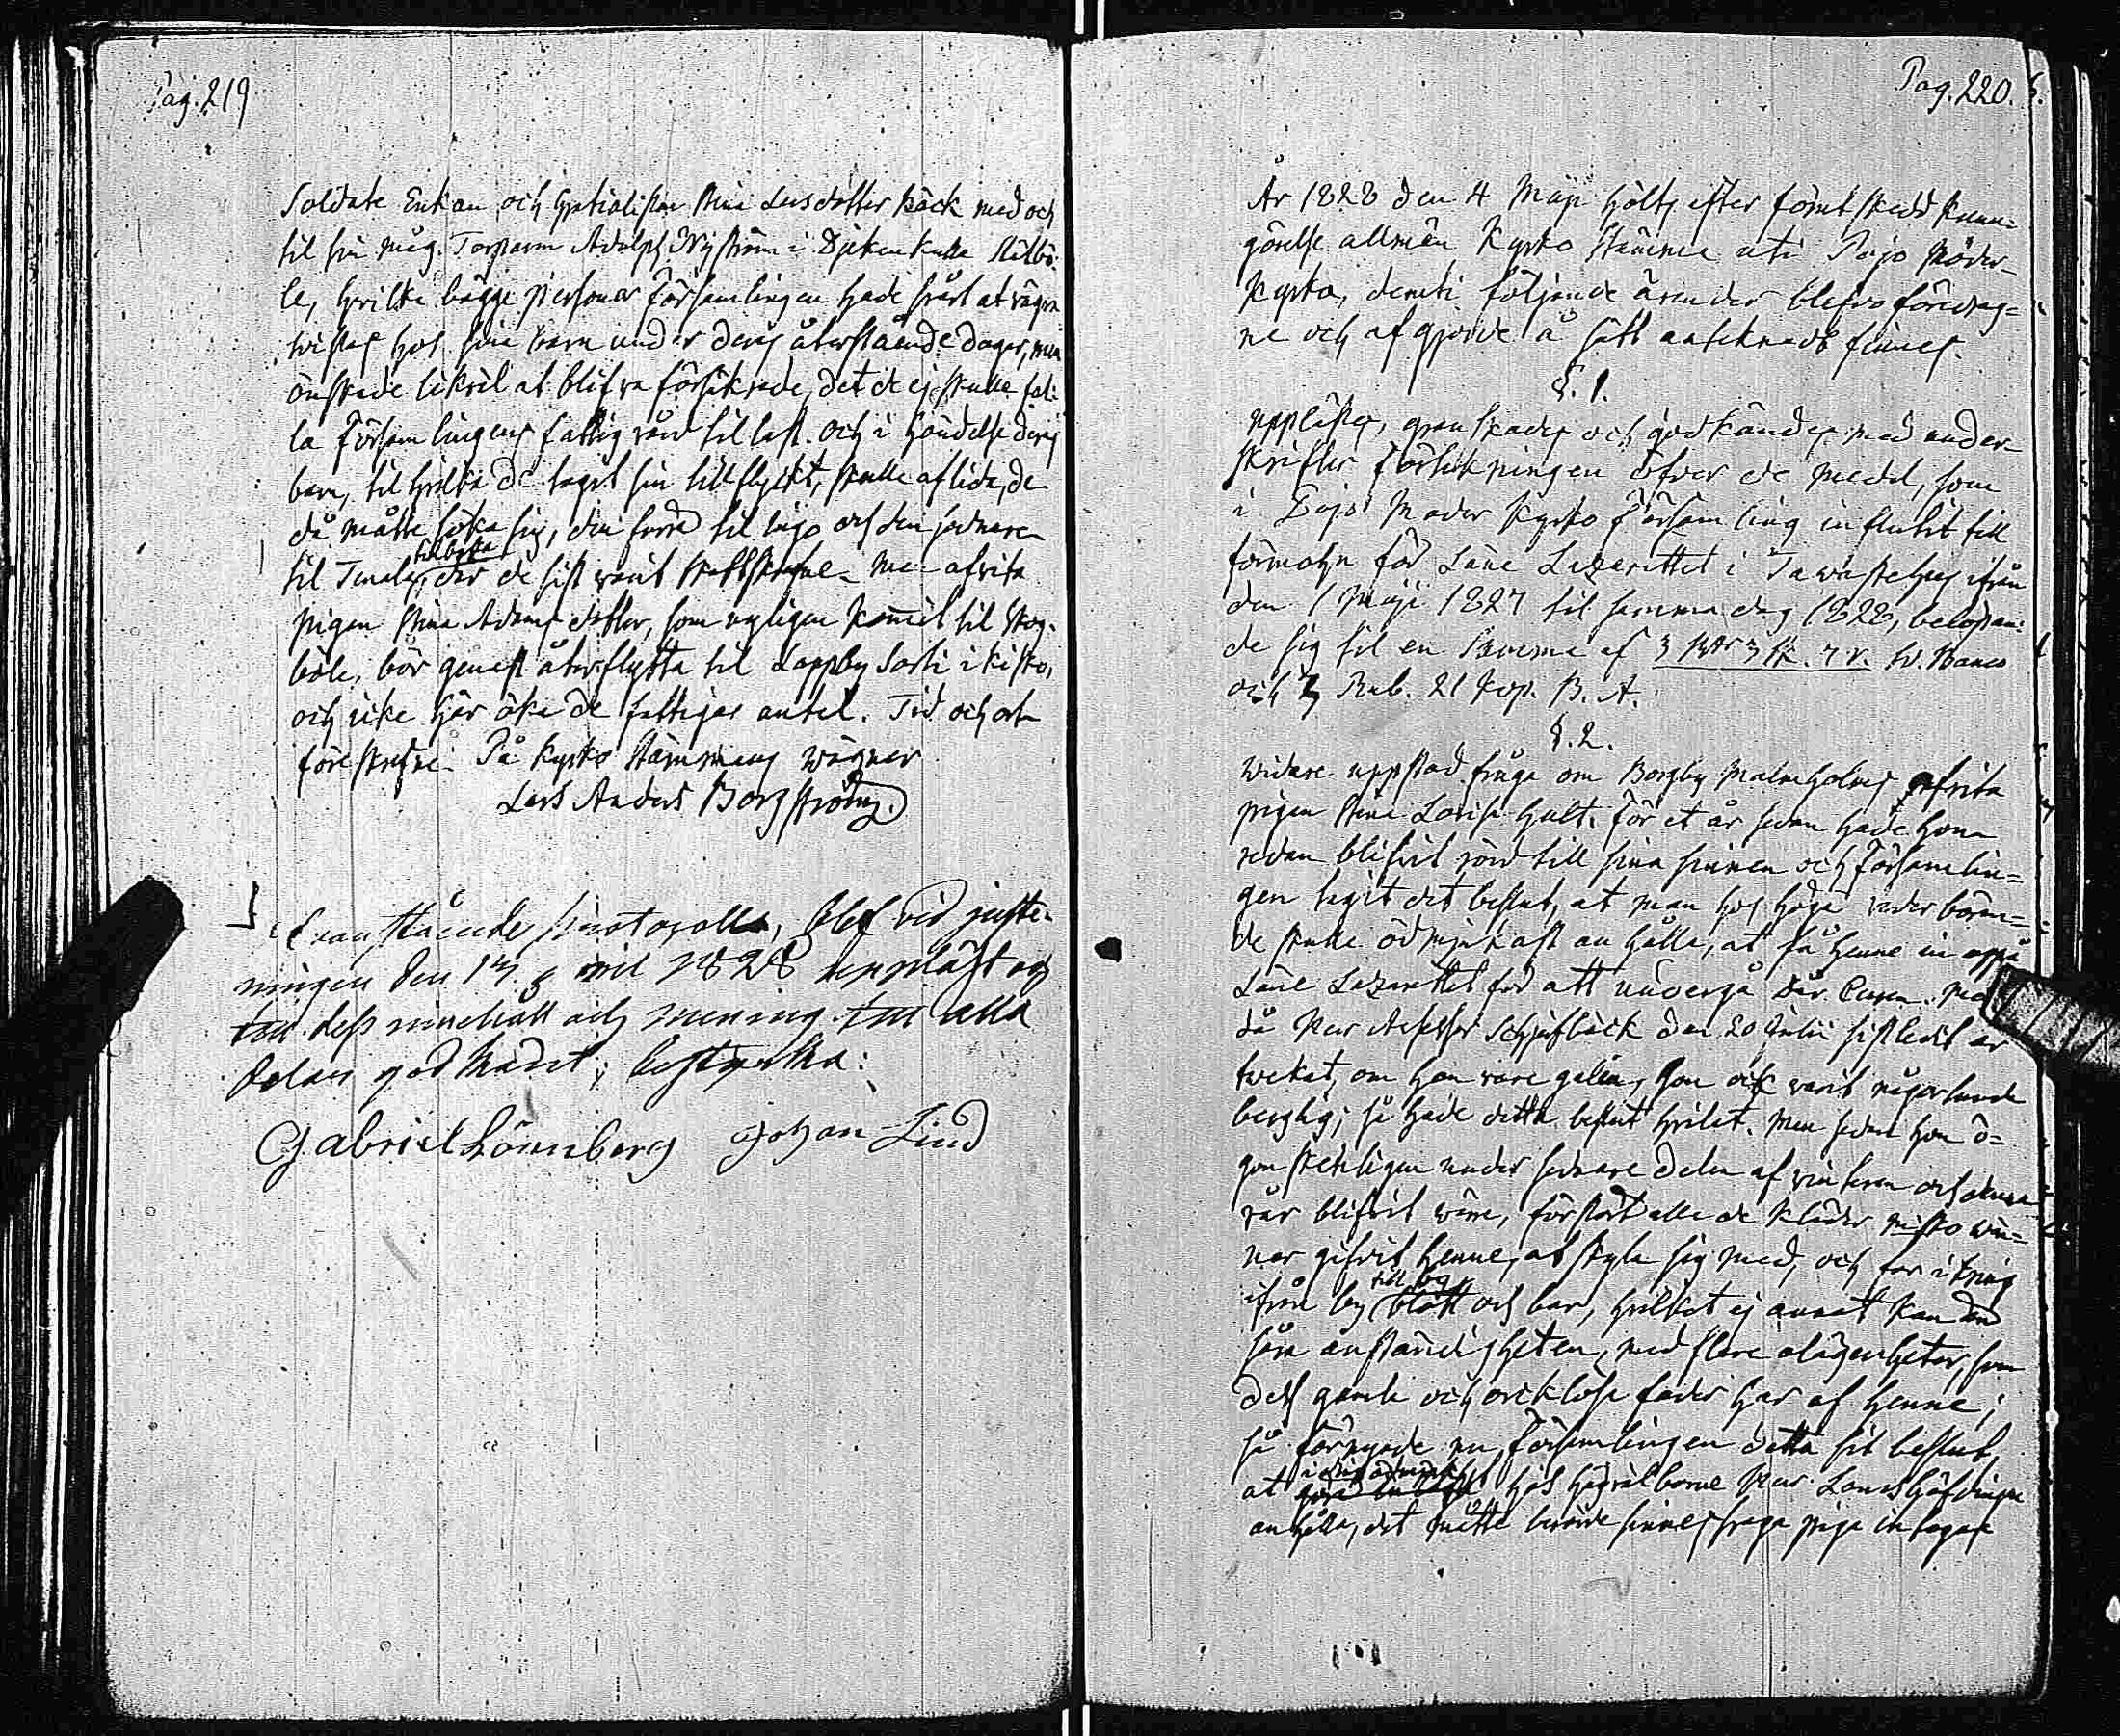 Pag. 219
Soldate Enkan och Gratialisten Stina Larsdotter Bäck med och
til sin måg Torparen Adolph Nyström i Djekenkulla Ställbö-
le, hvilka bägge personer Församlingen hade svårt at vägra
vistas hos sina barn under deras återstående dagar, men
önskade likväl at blifva försäkrade, det de ej skulle fal-
la Församlingens fattigvård till last. och i händelse deras
barn, til hvilka de tagit sin tillflykt, skulle aflida, de
då måtte söka sig, den förra til Ingo och den sednare
til Tenala, tilbaka der de sist varit skattskrifne. Men afvita
pigan Stina Adams dotter, som nyligen kommit til Skog-
böle, bör genast återflytta til Lappby Sorti i Kisko,
och icke här öka de fattigas antal. Tid och ort
föreskrefne. På Kyrko Stämmans wägnar
Lars Anders Borgström.
Ofvanstående protocoll, blef vid juste-
ningen den 13 april 1828 uppläst och
till dess innehåll och mening till alla
delar godkändt; bestyrka:
Gabriel Lönnberg Johan Lind
Pag. 220.
År 1828 den 4 Maji hölts efter förut skedd kun-
görelse allmän Kyrko Stämma uti Pojo Moder-
kyrka, deruti följande ärender blefvo föredrag-
ne och afgjorde å sätt antecknadt finnes.
§. 1.
upplästes, granskades och godkändes med under-
skrifter Förtekningen öfver de medel, som
i Pojo Moder Kyrko Församling influtit till
förmohn för Läne Lazarettet i Tawastehus ifrån
den 1 Maji 1827 til samma dag 1828, belöpan-
de sig til en Summa af 3 Rdr 3 sk. 7 r. Sv. Banco
och 3 Rub. 21 Kop. B. A.
§. 2.
Widare uppstod fråga om Borgby Malmholms afvita
pigan Stina Lovisa Hult. För et år sedan hade hon
redan blifvit rörd till sina sinnen och Församlin-
gen tagit det beslut, at man hos höga vederböran-
de skulle ödmjukast anhålla, at få henne in uppå
Läne Lazarettet för att undergå der Curen. Men
då Herr Assessor Schjefbäck den 20 Julii sistledit år
tvekat, om hon vore galen, hon ock varit någorlunda
berglig; så hade detta beslut hvilat. Men sedan hon ö-
gonskenligen under sednare delen af vintren och denna
vår blifvit värre, förstört alla de kläder menniskowän-
ner gifvit henne, at skyla sig med, och far ikring
ifrån by till by blott och bar, hvilket ej annat kan än
såra anständigheten, med flere olägenheter, som
dess gamla och orklösa fader har af henne;
så förnyade nu Församlingen detta sit beslut,
at i djup ödmjukhet hos Högvälborne Herr Landshöfdingen
anhålla, det måtte berörde sinnessvaga piga intagas